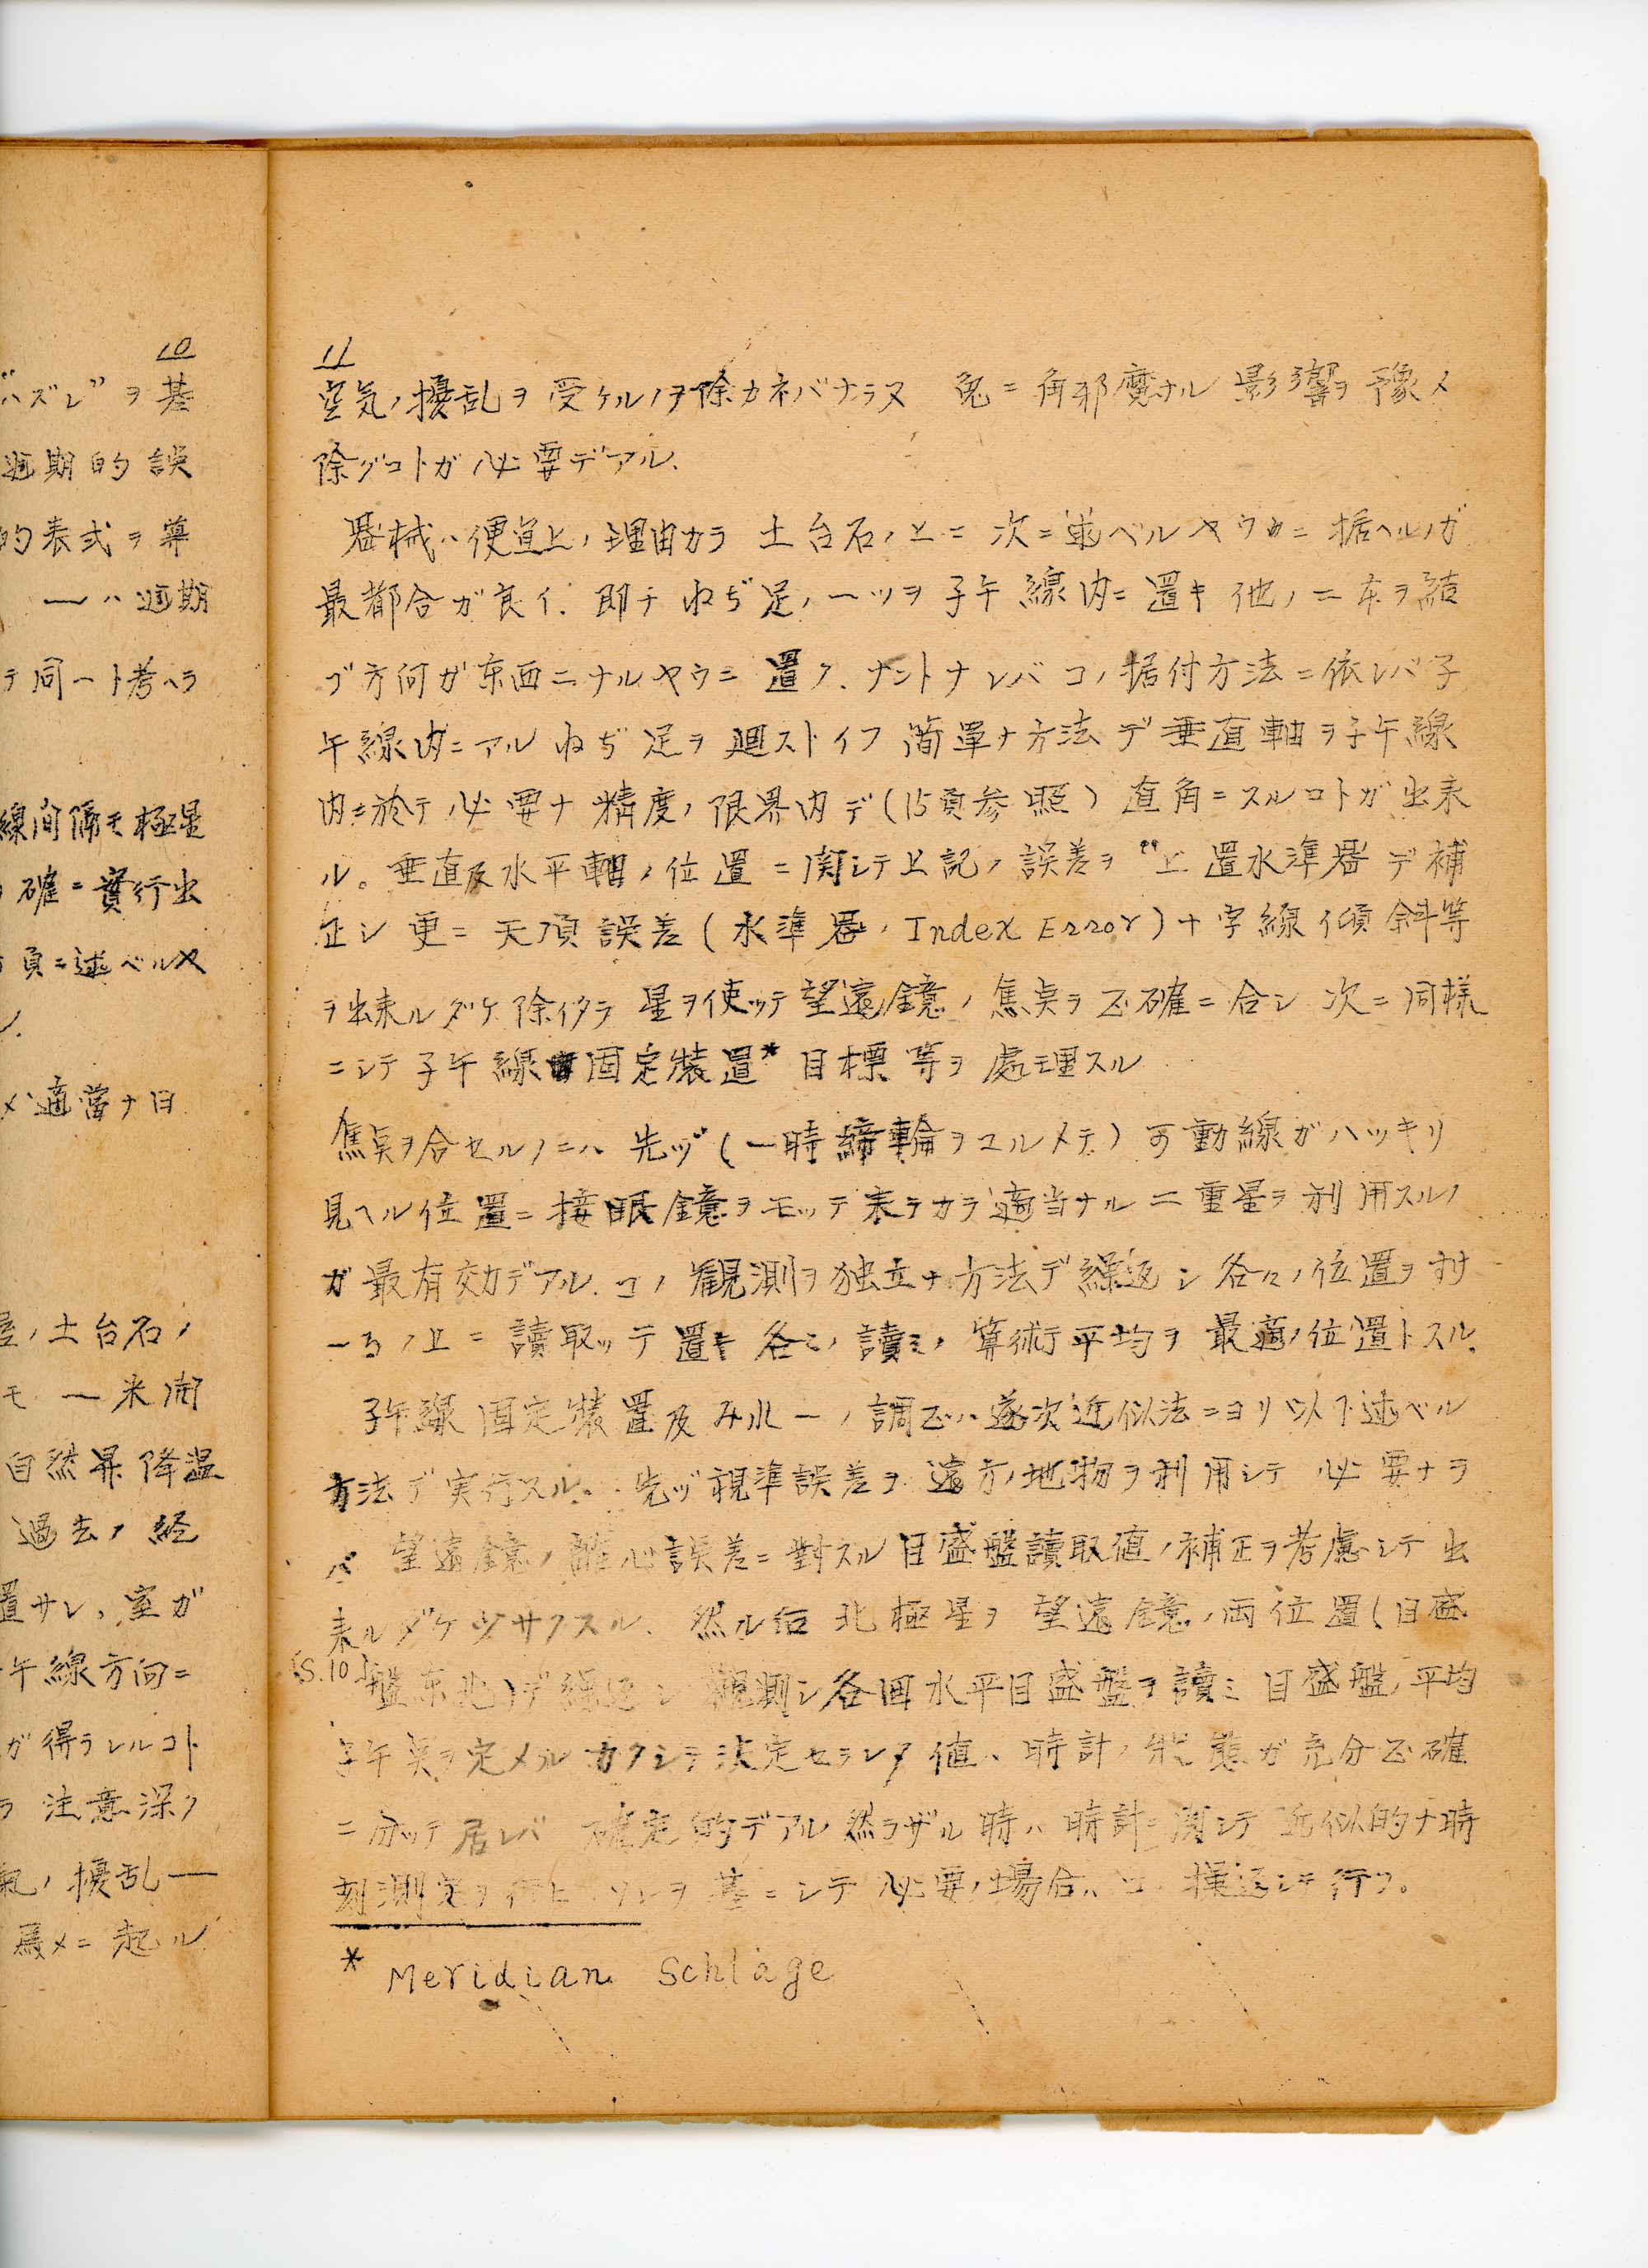 10
"ハズレ" ヲ 基
週期的誤
的表式ヲ導
一ハ週期
テ同一ト考ヘラ
線間隔モ極星
確ニ實行出
頁ニ述ベルヤ
適當ナ日
土台石ノ
モ 一米間
自然昇降温
過去ノ経
置サレ、室ガ
午線方向ニ
ガ得ラレルコト
ラ注意深ク
氣ノ擾乱一
為メニ起ル
11
空気ノ擾乱ヲ受ケルノヲ除カネバナラヌ 兎ニ角邪魔ナル影響ヲ予豫メ
除グコトガ必要デアル、
器械ハ便宜上ノ理由カラ土台石ノ上ニ次ニ述ベルヤウカニ据ヘルノガ
最都合ガ良イ、即チねぢ足ノ一ツヲ子午線内ニ置キ他ノ二本ヲ結
ブ方向ガ东西ニナルヤウニ置ク、ナントナレバコノ据付方法ニ依レバ子
午線内ニアルねぢ足ヲ廻ストイフ簡單ナ方法デ垂直軸ヲ子午線
内ニ於テ必要ナ精度ノ限界内デ(15頁参照)直角ニスルコトガ出来
ル。垂直及水平軸ノ位置ニ関シテ上記ノ誤差ヲ "上置水準器デ補
正シ更ニ天頂誤差(水準器ノIndex Error)十字線傾斜等
ヲ出来ルダケ除イタラ星ヲ使ッテ望遠鏡ノ焦点ヲ正確ニ合シ次ニ同様
ニシテ子午線固定装置*目標等ヲ處理スル
焦点ヲ合セルノニハ先ヅ(一時締輪ヲユルメテ)可動線ガハッキリ
見ヘル位置ニ接眼鏡ヲモッテ来テカラ適当ナル二重星ヲ利用スルノ
ガ最有効デアル、コノ観測ヲ独立ナ方法デ繰返シ各々ノ位置ヲすけ
ーるノ上ニ讀取ッテ置キ各々ノ讀ミノ算術平均ヲ最適ノ位置トスル、
子午線固定装置及みれーノ調正ハ逐次近似法ニヨリ以下述ベル
方法デ実行スル、先ヅ視準誤差ヲ遠方ノ地物ヲ利用シテ必要ナラ
バ望遠鏡ノ離心誤差ニ對スル目盛盤讀取値ノ補正ヲ考慮シテ出
来ルダケ少サクスル、然ル后北極星ヲ望遠鏡ノ両位置(目盛
(S.10)
盤东北)デ繰返シ観測シ各回水平目盛盤ヲ讀ミ目盛盤ノ平均
子午点ヲ定メル カクシテ決定セラレタ値ハ時計ノ状態ガ充分正確
ニ分ッテ居レバ確定的デアル然ラザル時ハ時計ニ関シテ近似的ナ時
刻測定ヲ行ヒソレヲ基ニシテ必要ノ場合ハ繰返シテ行フ。
* Meridian Schläge